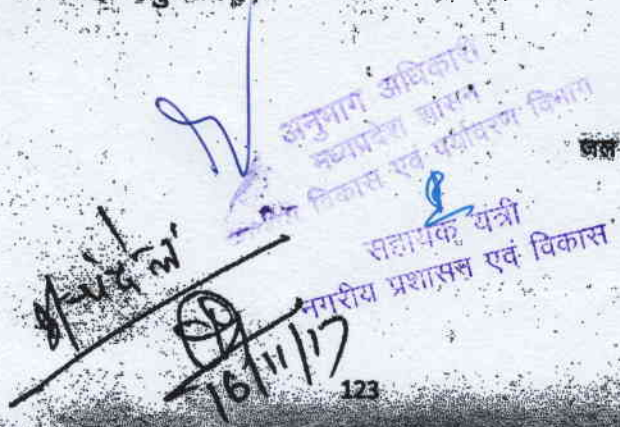 अनुभाग अधिकारी
मध्यप्रदेश शासन
विकास एवं पर्यावरण विभाग
जल
सहायक यंत्री
नगरीय प्रशासन एवं विकास
16/11/17
123